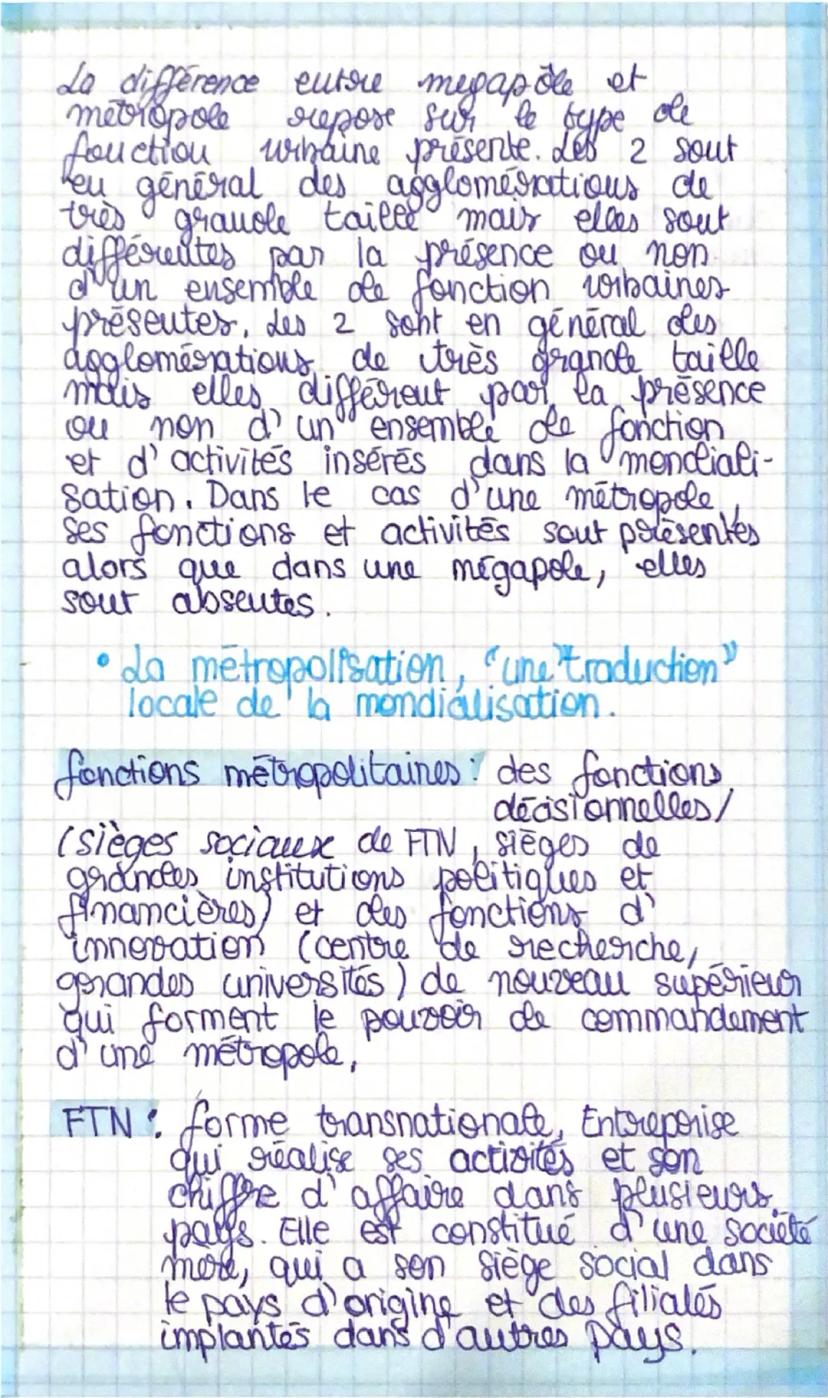 La différence entre megapôle et
métropole repose sur le type de
fonction urbaine présente. Les 2 sont
en général des agglomérations de
très grande taille mais elles sont
différentes par la présence ou non
d'un ensemble de fonction urbaines
présentes. Les 2 sont en général des
agglomérations de très grande taille
mais elles diffèrent par la présence
ou non d'un ensemble de fonction
et d'activités insérés dans la mondiali-
sation. Dans le cas d'une métropole,
ses fonctions et activités sont présentes
alors que dans une mégapole, elles
sont absentes.
• La métropolisation, "une "traduction"
locale de la mondialisation.
fonctions métropolitaines : des fonctions
décisionnelles/
(sièges sociaux de FTN, sièges de
grandes institutions politiques et
financières) et des fonctions d'
innovation (centre de recherche,
grandes universités) de nouveau supérieur
qui forment le pouvoir de commandement
d'une métropole.
FTN : forme transnationale, Entreprise
qui réalise ses activités et son
chiffre d'affaire dans plusieurs
pays. Elle est constitué d'une société
mère, qui a son siège social dans
le pays d'origine et des filiales
implantés dans d'autres pays.